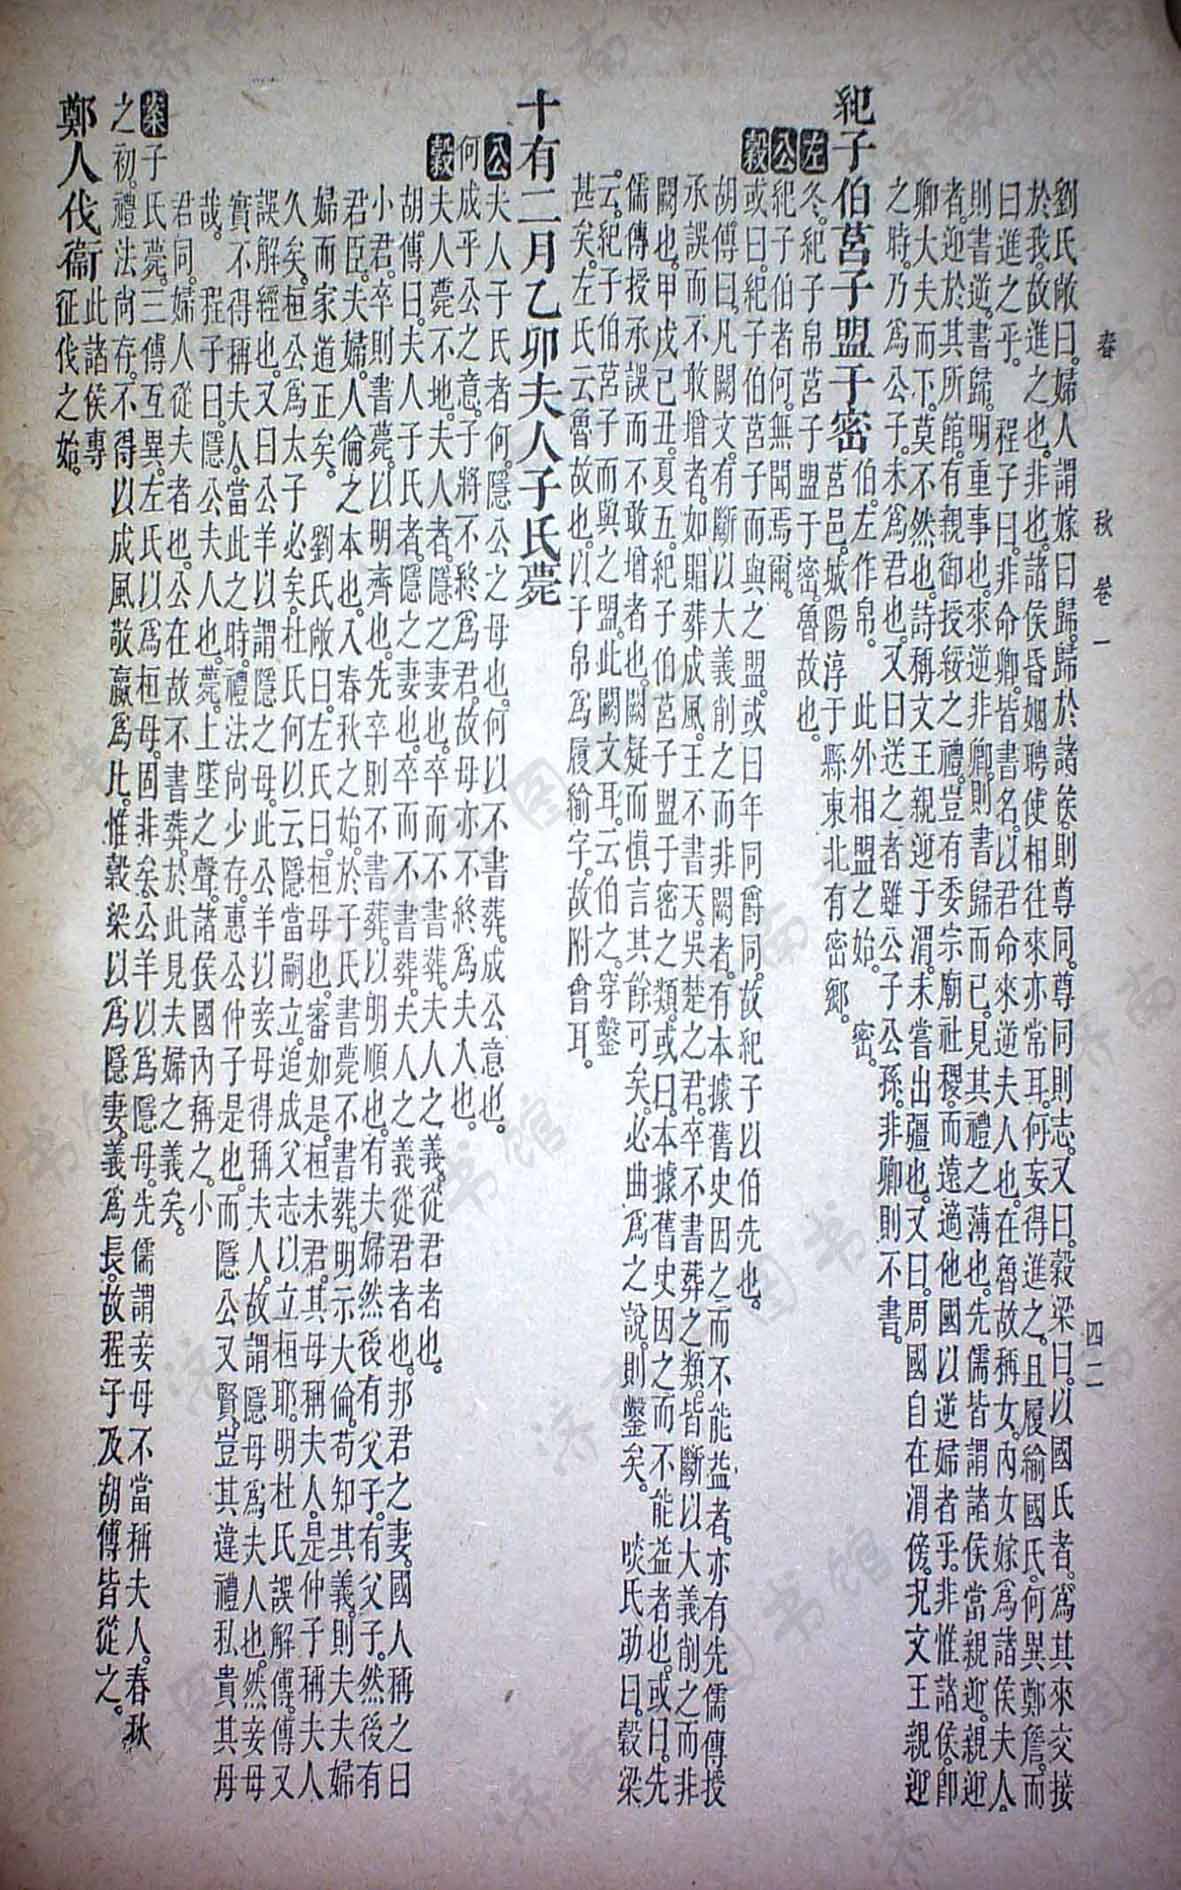 春秋 卷一 四二
劉氏敞曰。婦人謂嫁曰歸。歸於諸侯。則尊同。尊同則志。又曰。穀梁曰。以國氏者。爲其來交接
於我。故進之也。非也。諸侯昏姻聘使相往來亦常耳。何妄得進之。且履緰國氏。何異鄭詹。而
曰進之乎。 程子曰。非命卿。皆書名。以君命來逆夫人也。在魯故稱女。內女嫁爲諸侯夫人。
則書逆。書歸。明重事也。來逆非卿。則書歸而已。見其禮之薄也。先儒皆謂諸侯當親迎。親迎
者。迎於其所館。有親御授綏之禮。豈有委宗廟社稷。而遠適他國以逆婦者乎。非惟諸侯。卽
卿大夫而下。莫不然也。詩稱文王親迎于渭。未嘗出疆也。又曰。周國自在渭傍。況文王親迎
之時。乃爲公子。未爲君也。又曰。送之者雖公子公孫。非卿則不書。
紀子伯莒子盟于密 伯。左作帛。 此外相盟之始。 密。
莒邑。城陽淳于縣東北有密鄉。
左 冬。紀子帛莒子盟于密。魯故也。
公 紀子伯者何。無聞焉爾。
穀 或曰。紀子伯莒子而與之盟。或曰。年同爵同。故紀子以伯先也。
胡。傳曰。凡闕文。有斷以大義削之而非闕者。有本據舊史因之而不能益者。亦有先儒傳授
承誤而不敢增者。如賵葬成風。王不書天。吳楚之君。卒不書葬之類。皆斷以大義削之而非
闕也。甲戌己丑。夏五。紀子伯莒子盟于密之類。或曰。本據舊史因之而不能益者也。或曰。先
儒傳授承誤而不敢增者也。闕疑而慎言其餘可矣。必曲爲之說。則鑿矣。 啖氏助曰。穀梁
云。紀子伯莒子而與之盟。此闕文耳。云伯之。穿鑿
甚矣。左氏云魯故也。以子帛爲履緰字。故附會耳。
十有二月乙卯夫人子氏薨
公 夫人子氏者何。隱公之母也。何以不書葬。成公意也。
何成乎公之意。子將不終爲君。故母亦不終爲夫人也。
穀 夫人薨不地。夫人者。隱之妻也。卒而不書葬。夫人之義。從君者也。
胡。傳曰。夫人子氏者。隱之妻也。卒而不書葬。夫人之義從君者也。邦君之妻。國人稱之曰
小君。卒則書薨。以明齊也。先卒則不書葬。以明順也。有夫婦然後有父子。有父子。然後有
君臣。夫婦。人倫之本也。入春秋之始。於子氏書薨不書葬。明示大倫。苟知其義。則夫夫婦
婦而家道正矣。 劉氏敞曰。左氏曰。桓母也。審如是。桓未君。其母稱夫人。是仲子稱夫人
久矣。桓公爲太子必矣。杜氏何以云隱當嗣立。追成父志以立桓耶。明杜氏誤解傳。傳又
誤解經也。又曰公羊以謂隱之母。此公羊以妾母得稱夫人。故謂隱母爲夫人也。然妾母
實不得稱夫人。當此之時。禮法尚少存。惠公仲子是也。而隱公又賢。豈其違禮私貴其母
哉。 程子曰。隱公夫人也。薨。上墜之聲。諸侯國內稱之。小
君同。婦人從夫者也。公在故不書葬。於此見夫婦之義矣。
案 子氏薨。三傳互異。左氏以爲桓母。固非矣。公羊以爲隱母。先儒謂妾母不當稱夫人。春秋
之初。禮法尚存。不得以成風敬嬴爲比。惟穀梁以爲隱妻。義爲長。故程子及胡。傳皆從之。
鄭人伐衞 此諸侯專
征伐之始。